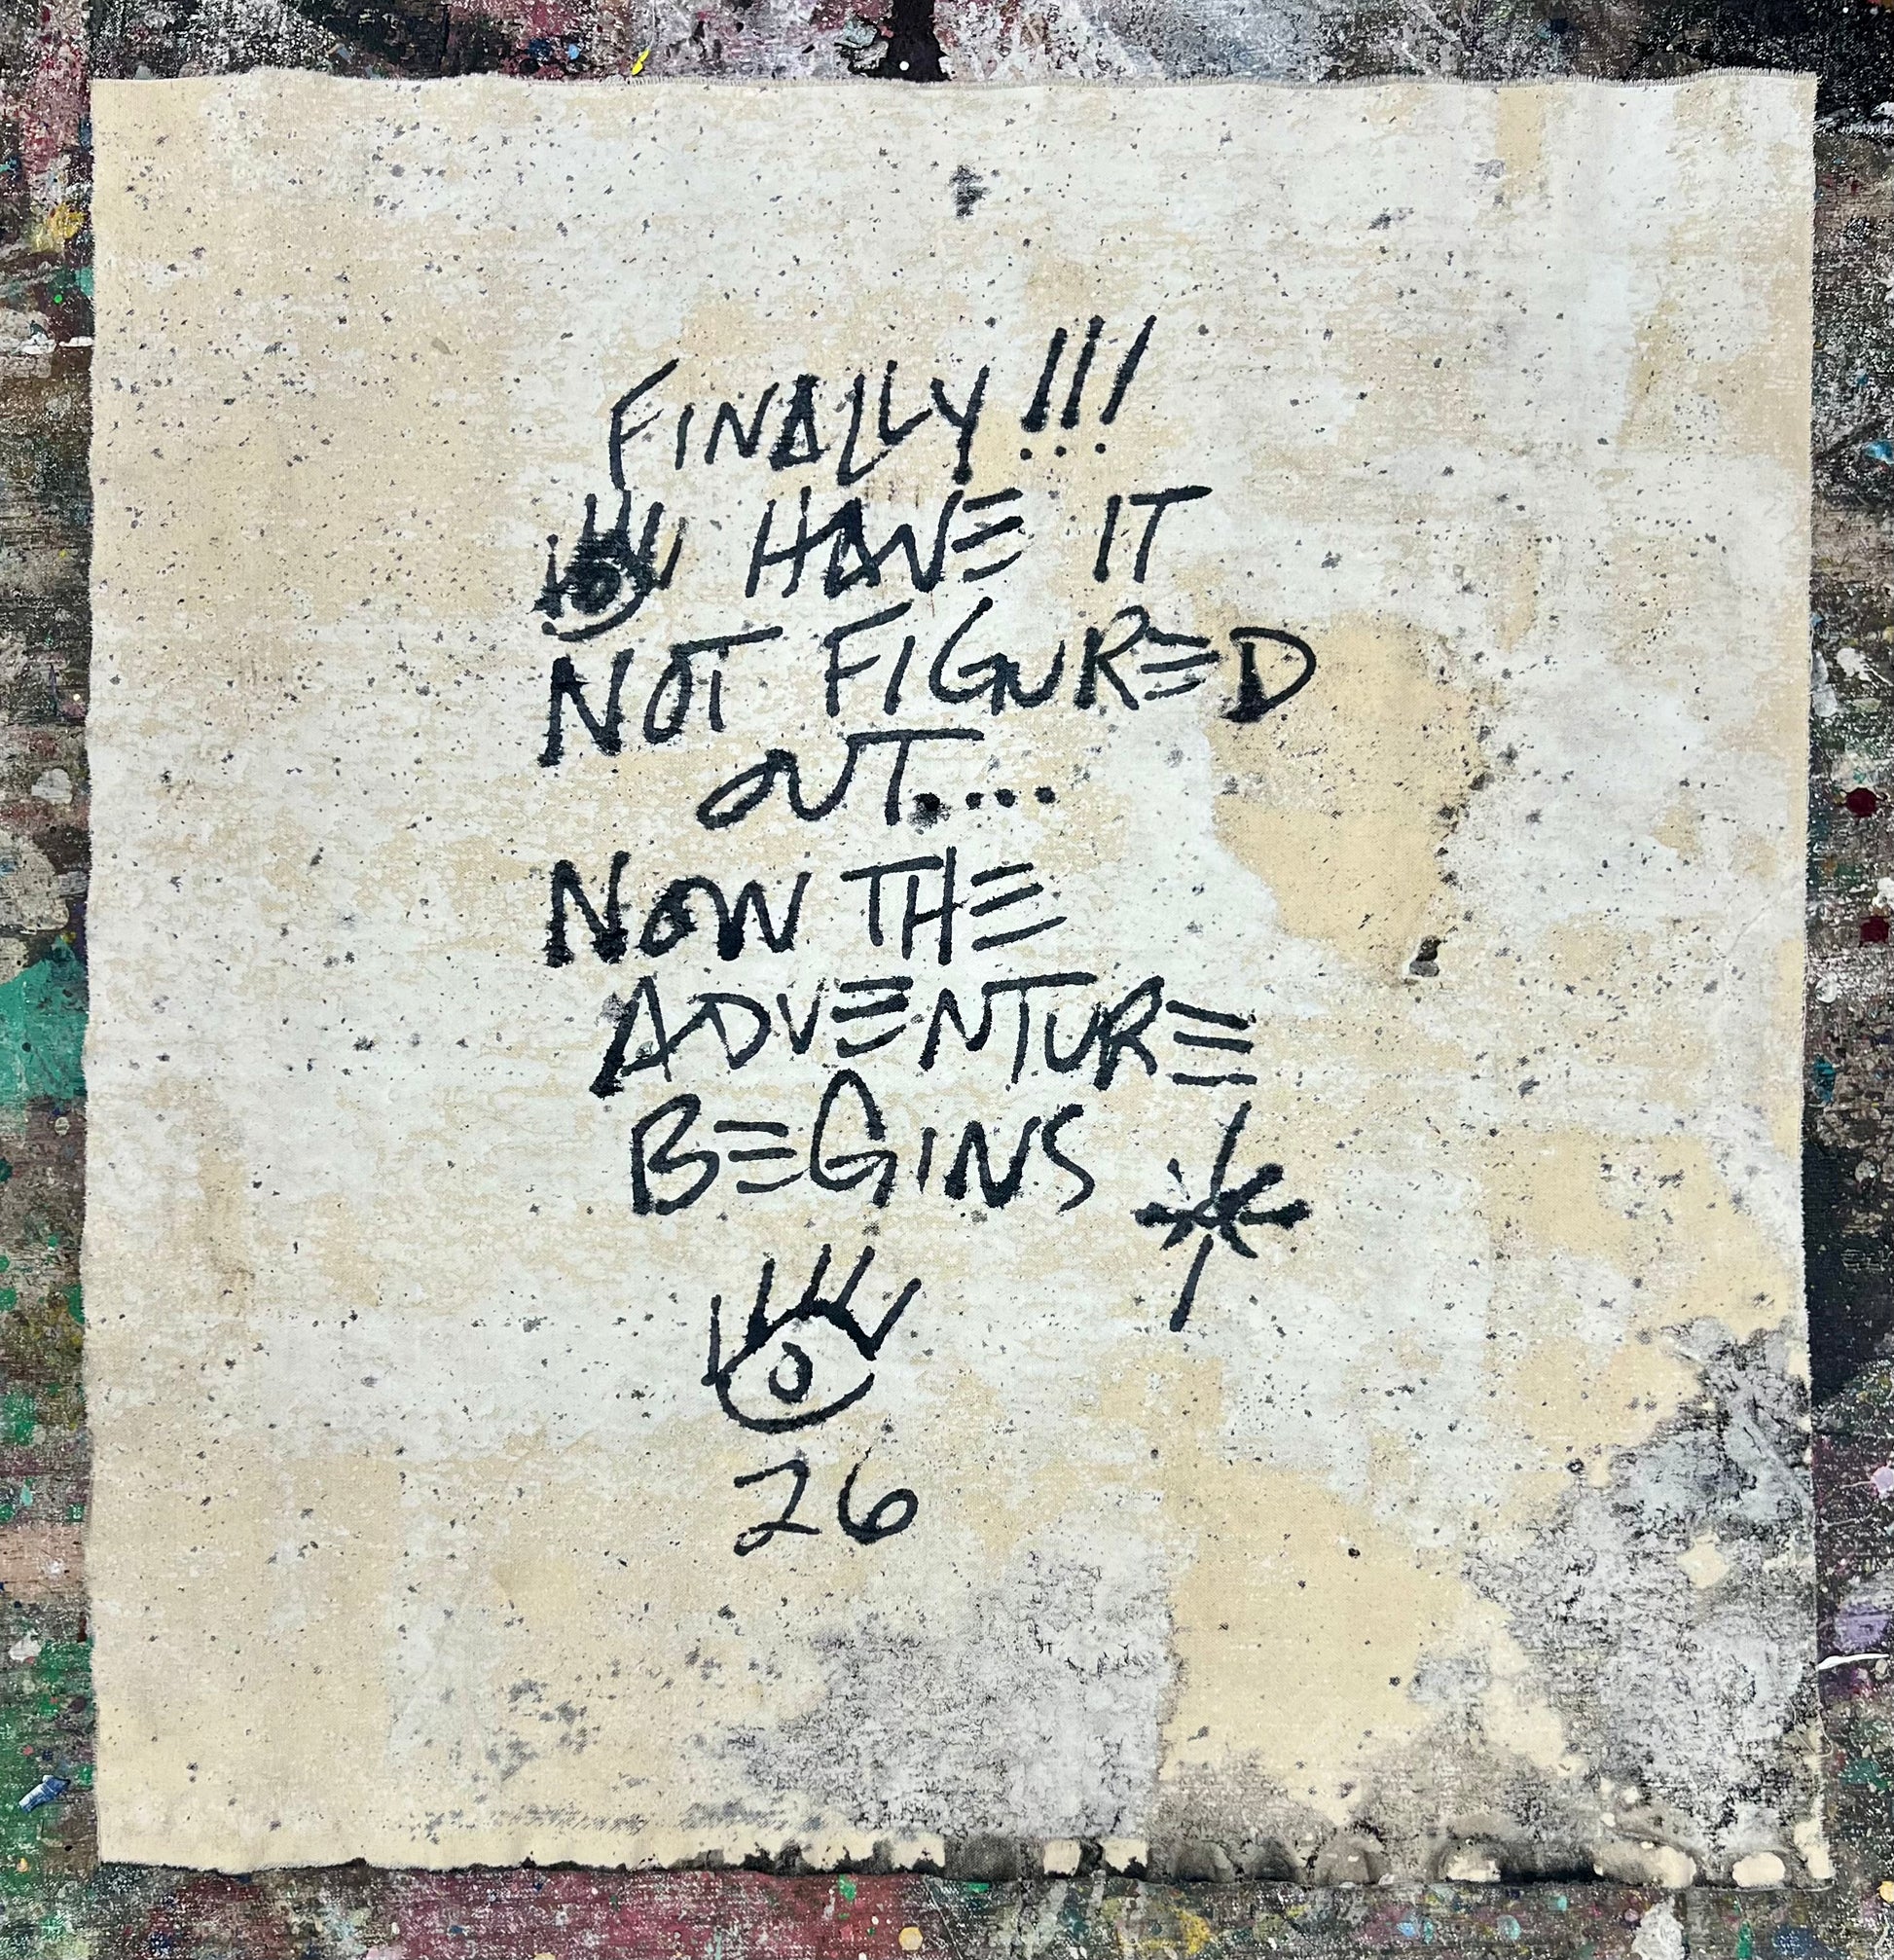 FINALLY!!!
HAVE IT
NOT FIGURED
OUT....
NOW THE
ADVENTURE
BEGINS
26